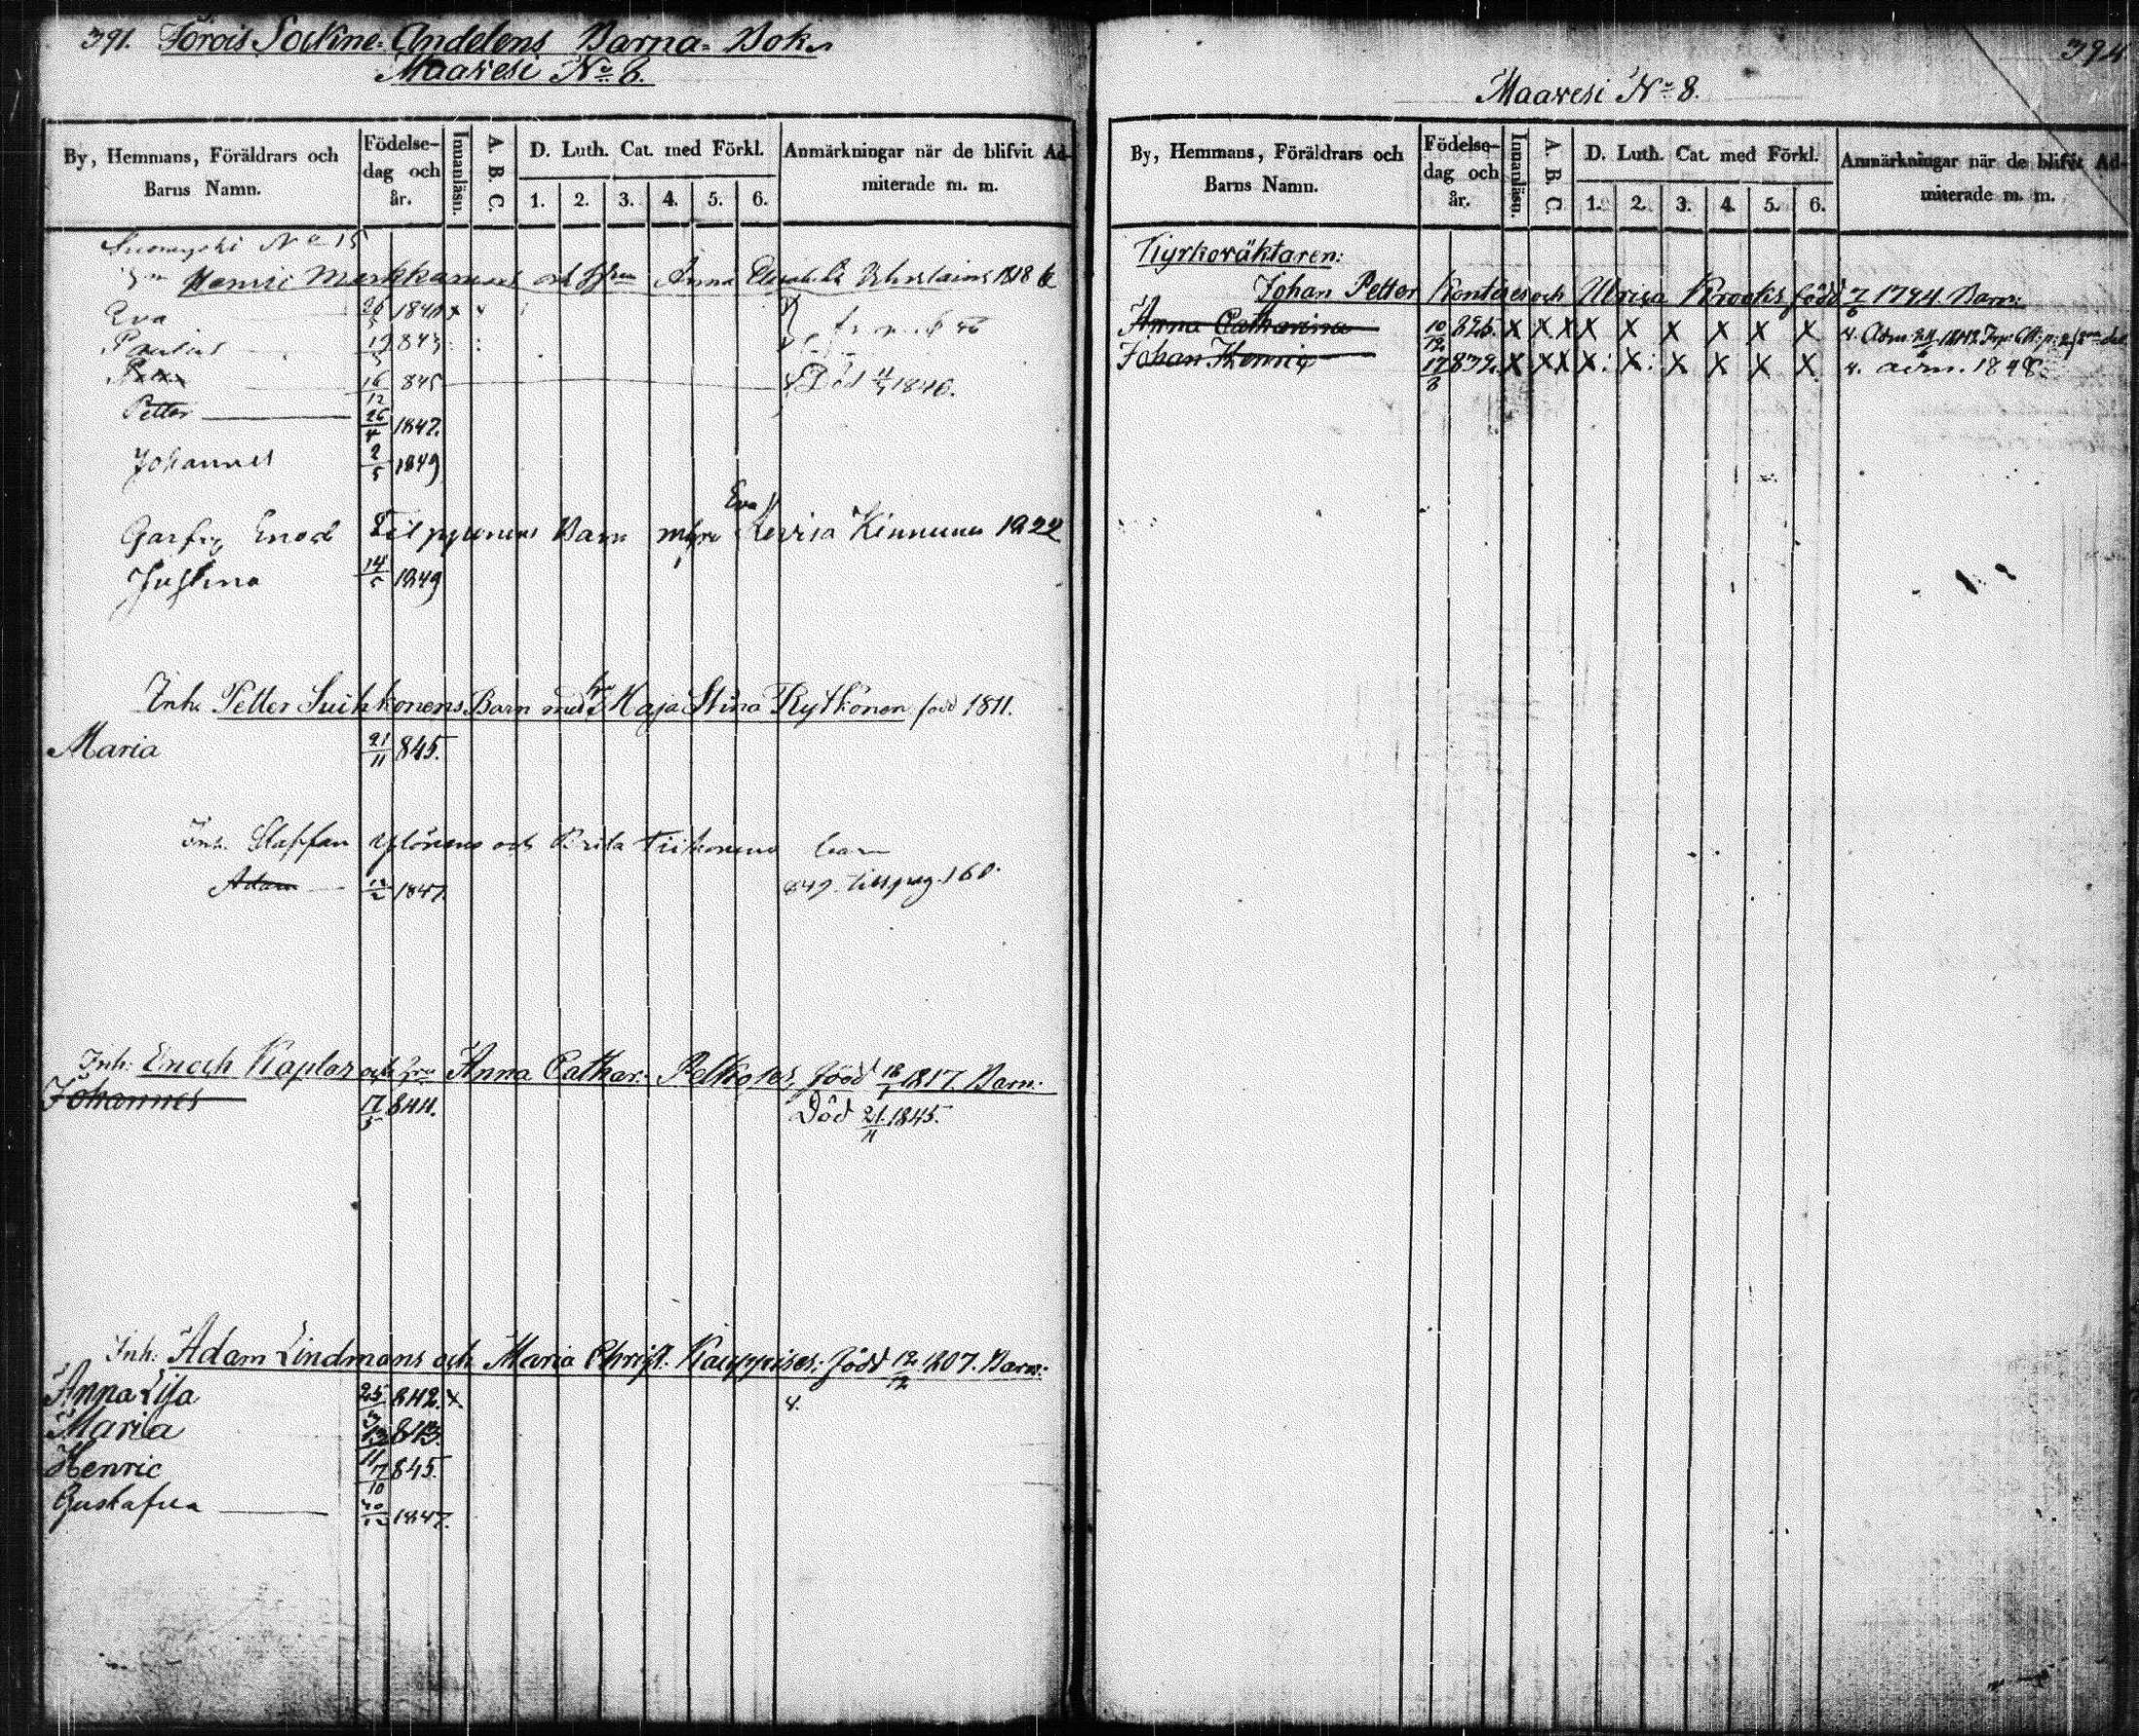 391. Jorois Sockne-Andelens Barna-Bok
Maavesi No 8.
By, Hemmans, Föräldrars och Barns Namn.
Födelse-dag och år.
Innanläsn.
A. B. C.
D. Luth. Cat. med Förkl.
1. 2. 3. 4. 5. 6.
Anmärkningar när de blifvit Admiterade m. m.
No 15
Henric Markkanens och Anna Elisabeth 1818
Eva 1840 x
Paulus 843
16/12 845 Död 1846.
Petter 26/4 1847.
Johannes 2/5 1849
Enoch Filppunens Barn Eva Lovisa Kinnunen 1822
Justina 14/5 1849
Inh. Petter Suihkonens Barn med Maja Stina Rytkönen född 1811.
Maria 21/11 845.
Inh. Staffan Ylönens och Brita Tiihonens barn
Adam 1847. 849. till pag. 160.
Inh: Enoch Kaplas och Anna Cathar: Pelkoses, född 1817. Barn:
Johannes 17/5 844. Död 21/11 1845.
Inh: Adam Lindmans och Maria Christ. Kauppises: född 12/12 1807. Barn:
Anna Lisa 25 842. x.
Maria 13/11 843.
Henric 7/10 845.
Gustafva 1847.
394
Maavesi No 8.
By, Hemmans, Föräldrars och Barns Namn.
Födelse-dag och år.
Innanläsn.
A. B. C.
D. Luth. Cat. med Förkl.
1. 2. 3. 4. 5. 6.
Anmärkningar när de blifvit Admiterade m. m.
Kyrkoväktaren:
Johan Petter och Ulrica Krooks född 7/6 1794. Barn:
Anna Catharina 10/12 825. X X X X X X X X X
Johan Henric 17/8 832. X X X X: X: X X X X. adm. 1848.